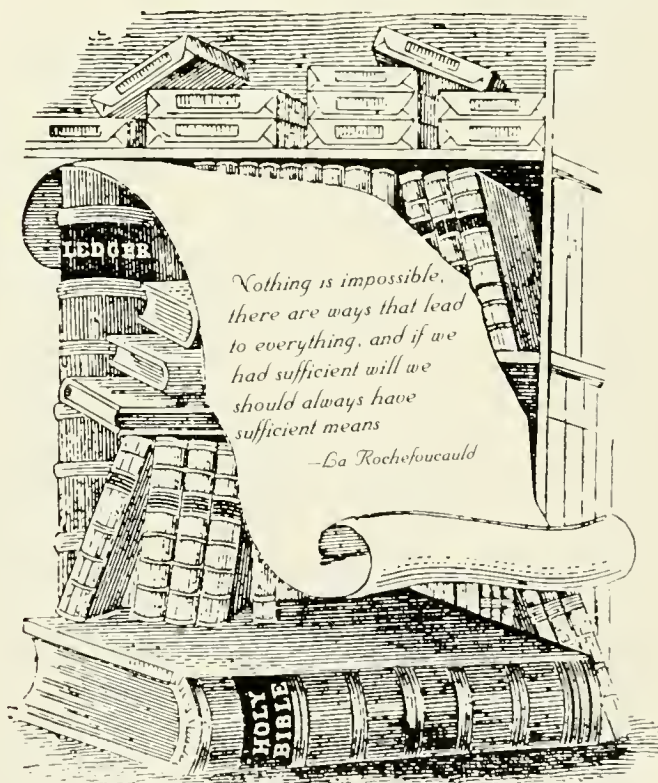 LEDGER
Nothing is impossible,
there are ways that lead
to everything, and if we
had sufficient will we
should always have
sufficient means
—La Rochefoucauld
HOLY
BIBLE